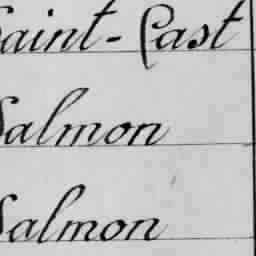 Saint-Cast
Salmon
Salmon